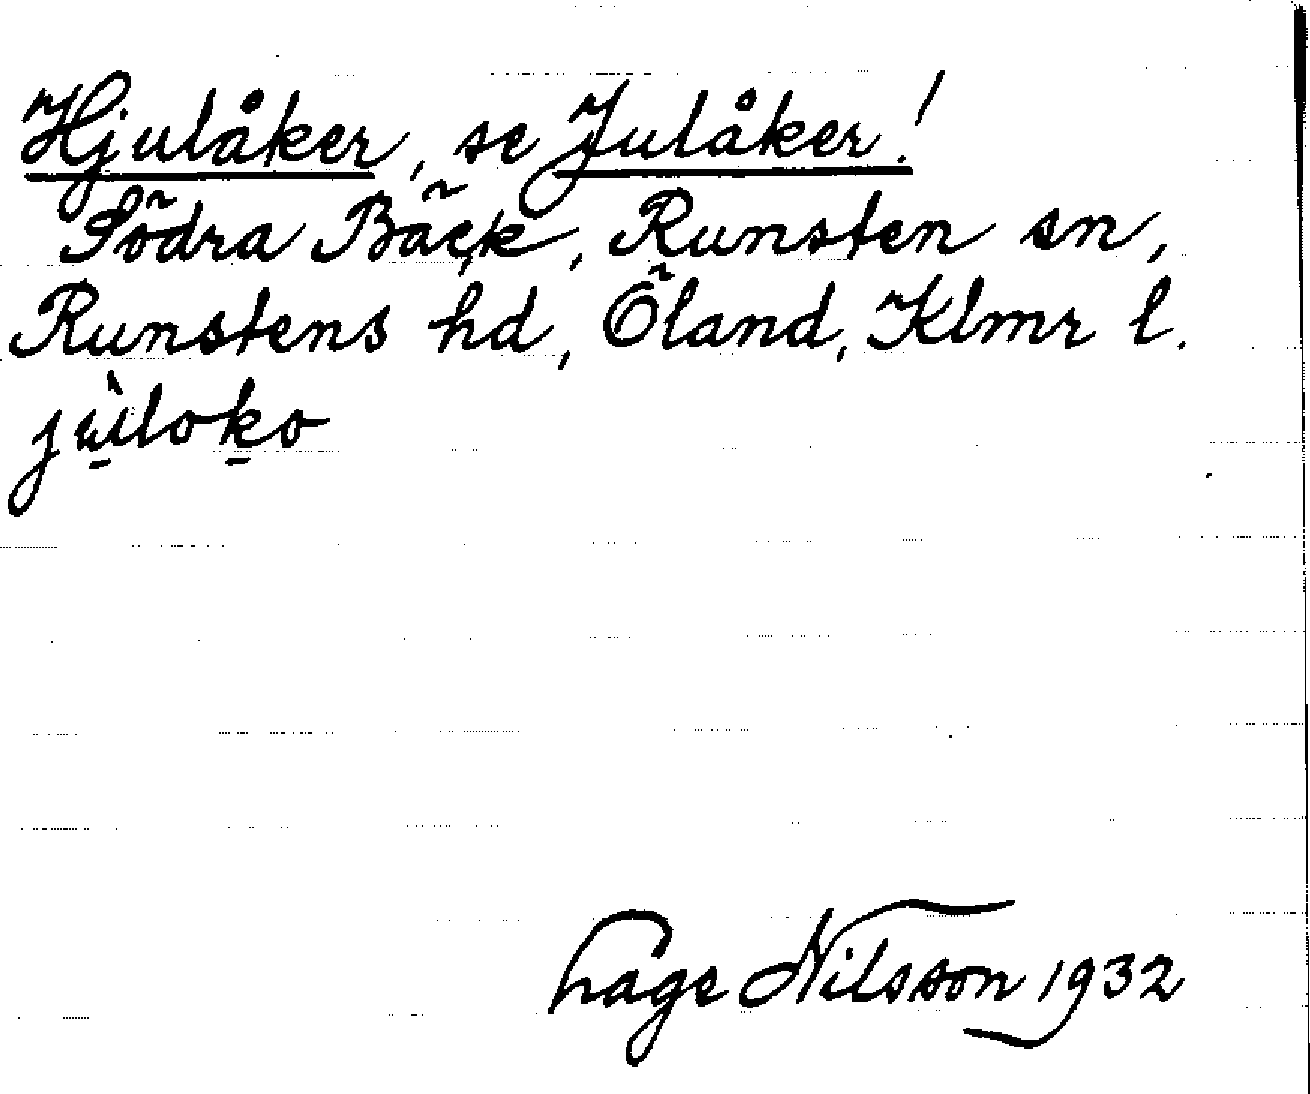 Hjulåker, se Julåker!
Södra Bäck, Runsten sn,
Runstens hd, Öland, Klmr l.
Lage Nilsson 1932